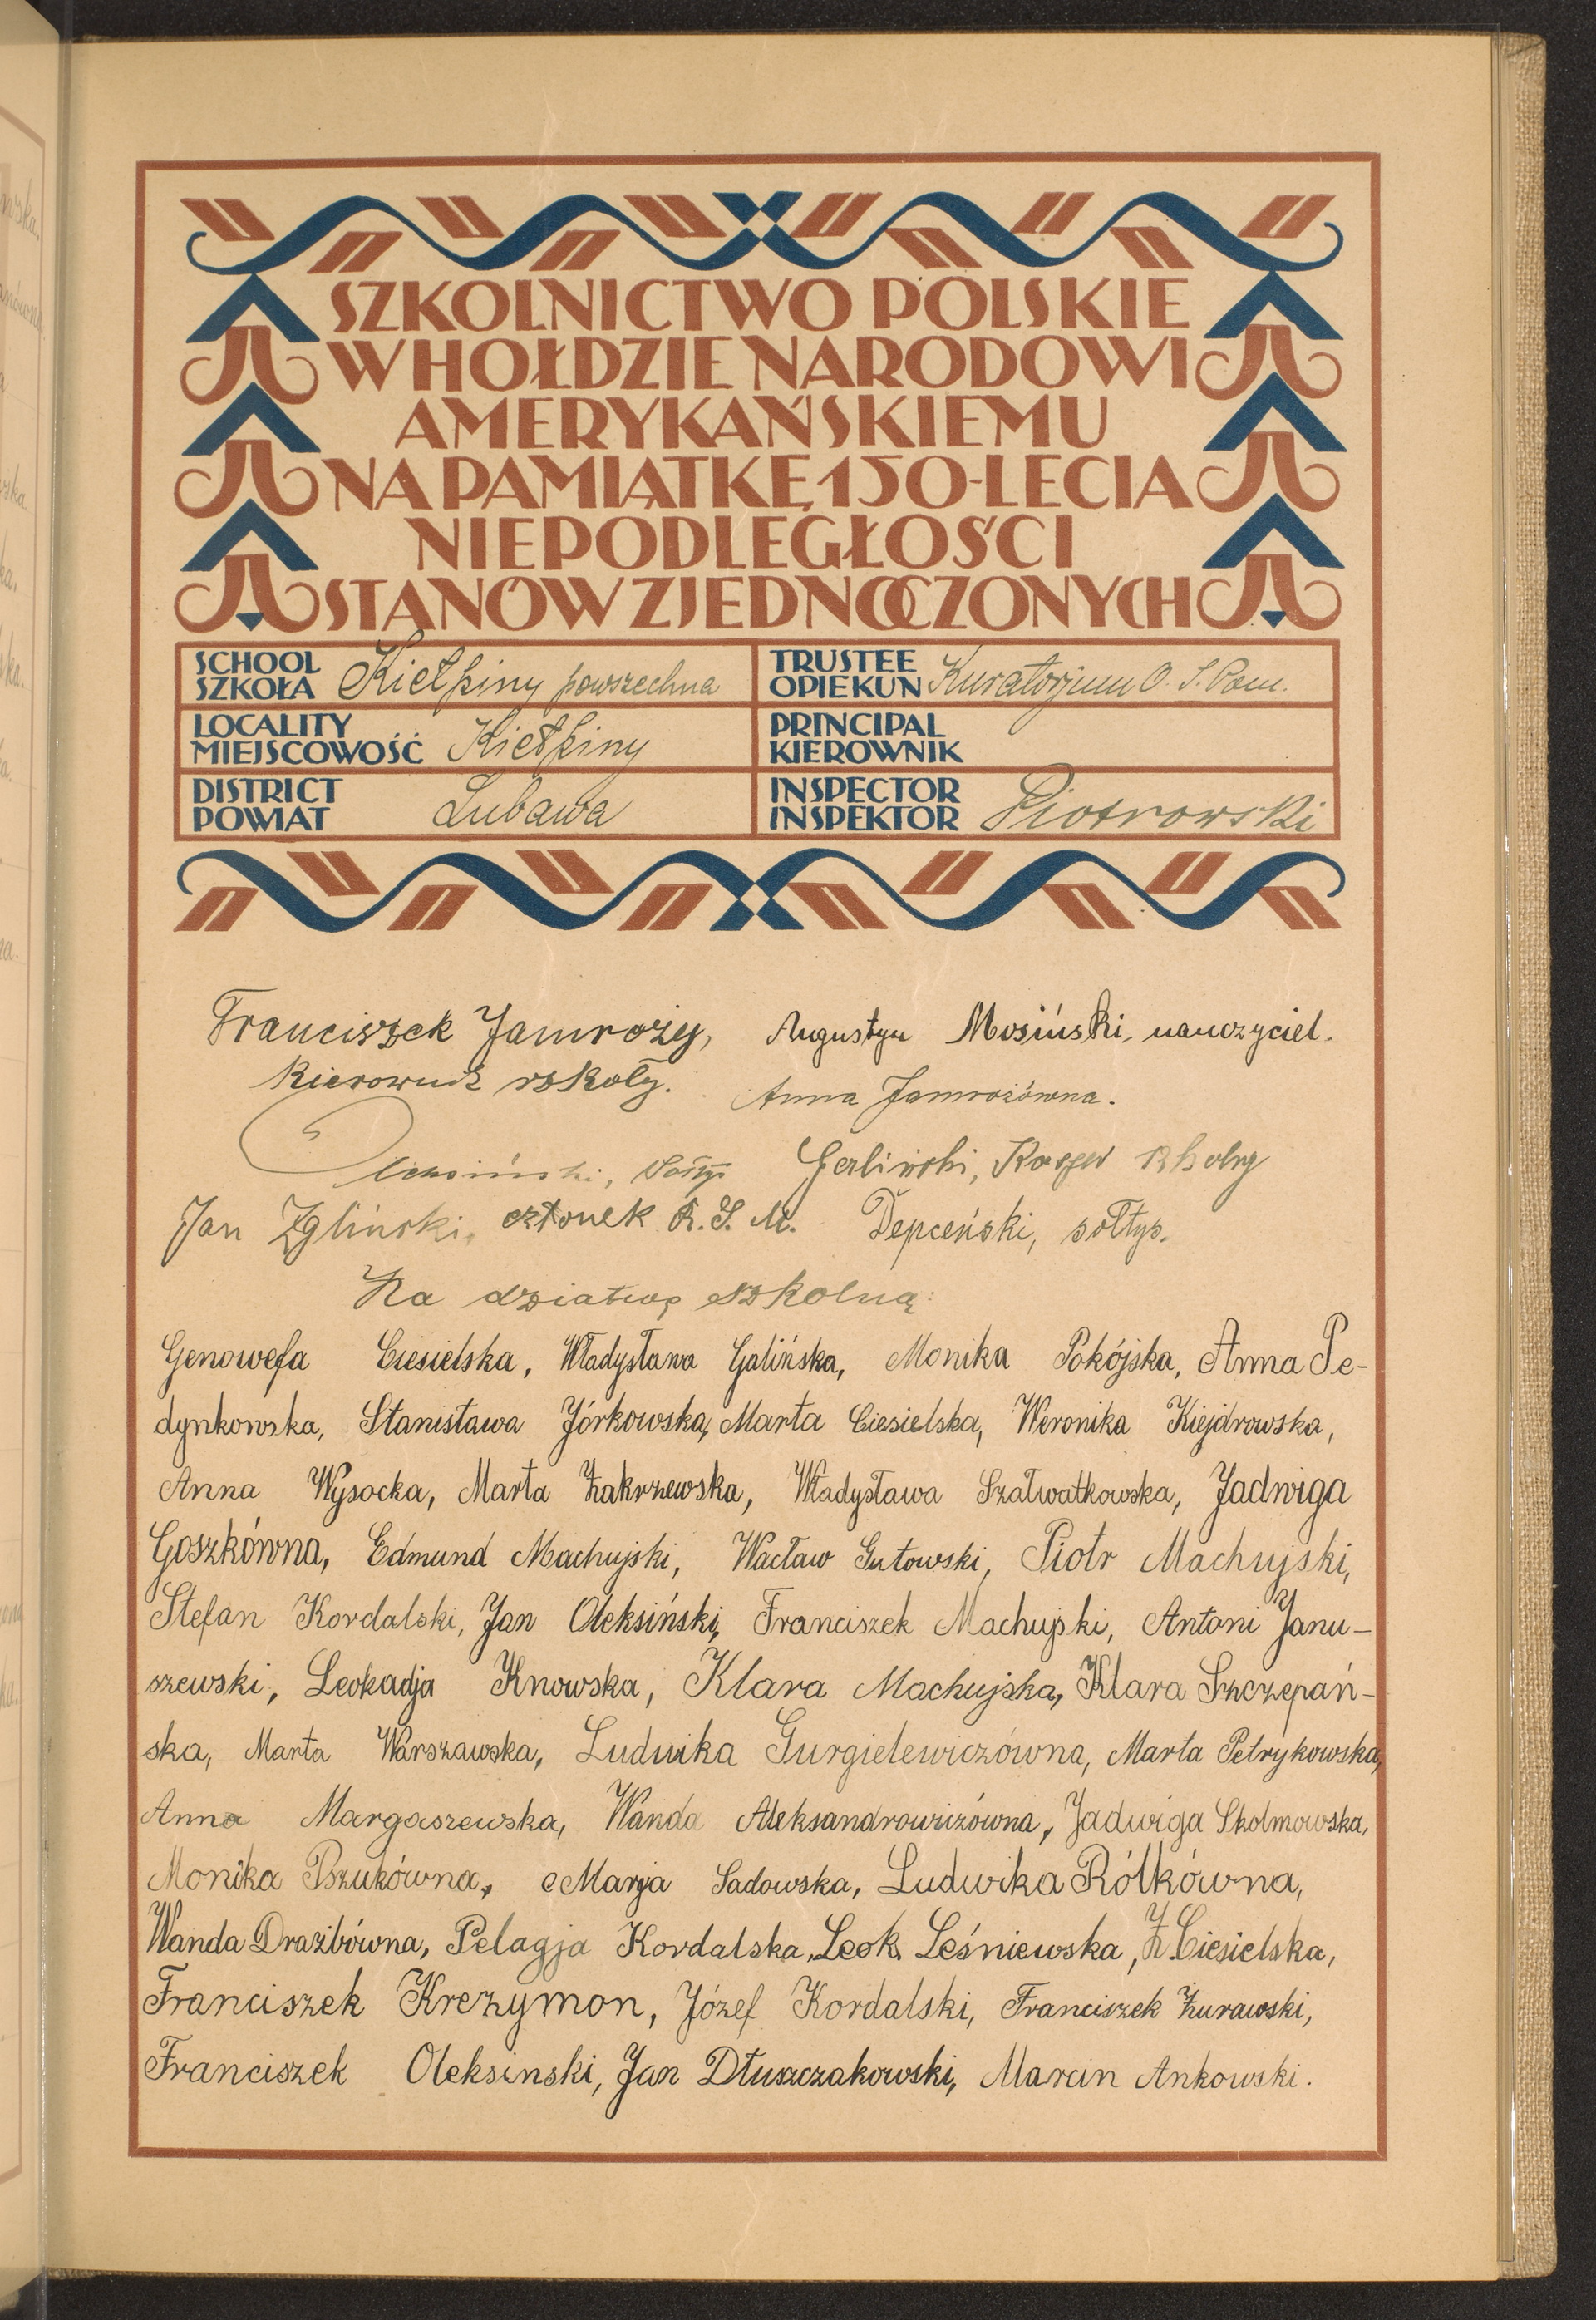 SZKOLNICTWO POLSKIE
W HOŁDZIE NARODOWI
AMERYKAŃSKIEMU
NA PAMIĄTKĘ 150-LECIA
NIEPODLEGŁOŚCI
STANÓW ZJEDNOCZONYCH
SCHOOL
SZKOŁA Kiełpiny powszechna
TRUSTEE
OPIEKUN Kuratorjum O. S. Pom.
LOCALITY
MIEJSCOWOŚĆ Kiełpiny
PRINCIPAL
KIEROWNIK
DISTRICT
POWIAT Lubawa
INSPECTOR
INSPEKTOR Piotrowski
Franciszek Jamroży, Augustyn Mosiński, nauczyciel.
Kierownik szkoły. Anna Jamrożówna.
Oleksiński, sołtys Galiński,
Jan Zgliński, członek R. S. M. Depceński, sołtys.
Za dziatwę szkolną:
Genowefa Ciesielska, Władysława Galińska, Monika Pokójska, Anna Pe-
dynkowska, Stanisława Jórkowska, Marta Ciesielska, Weronika Kiejdrowska,
Anna Wysocka, Marta Zakrzewska, Władysława Szałwatkowska, Jadwiga
Goszkówna, Edmund Machujski, Wacław Gutowski, Piotr Machujski,
Stefan Kordalski, Jan Oleksiński, Franciszek Machujski, Antoni Janu-
szewski, Leokadja Knowska, Klara Machujska, Klara Szczepań-
ska, Marta Warszawska, Ludwika Gurgielewiczówna, Marta Petrykowska,
Anna Margaszewska, Wanda Aleksandrowiczówna, Jadwiga Skolmowska,
Monika Pszukówna, Marja Sadowska, Ludwika Rólkówna,
Wanda Drażbówna, Pelagja Kordalska, Leok. Leśniewska, Z. Ciesielska,
Franciszek Krezymon, Józef Kordalski, Franciszek Żurawski,
Franciszek Oleksinski, Jan Dłuszczakowski, Marcin Ankowski.